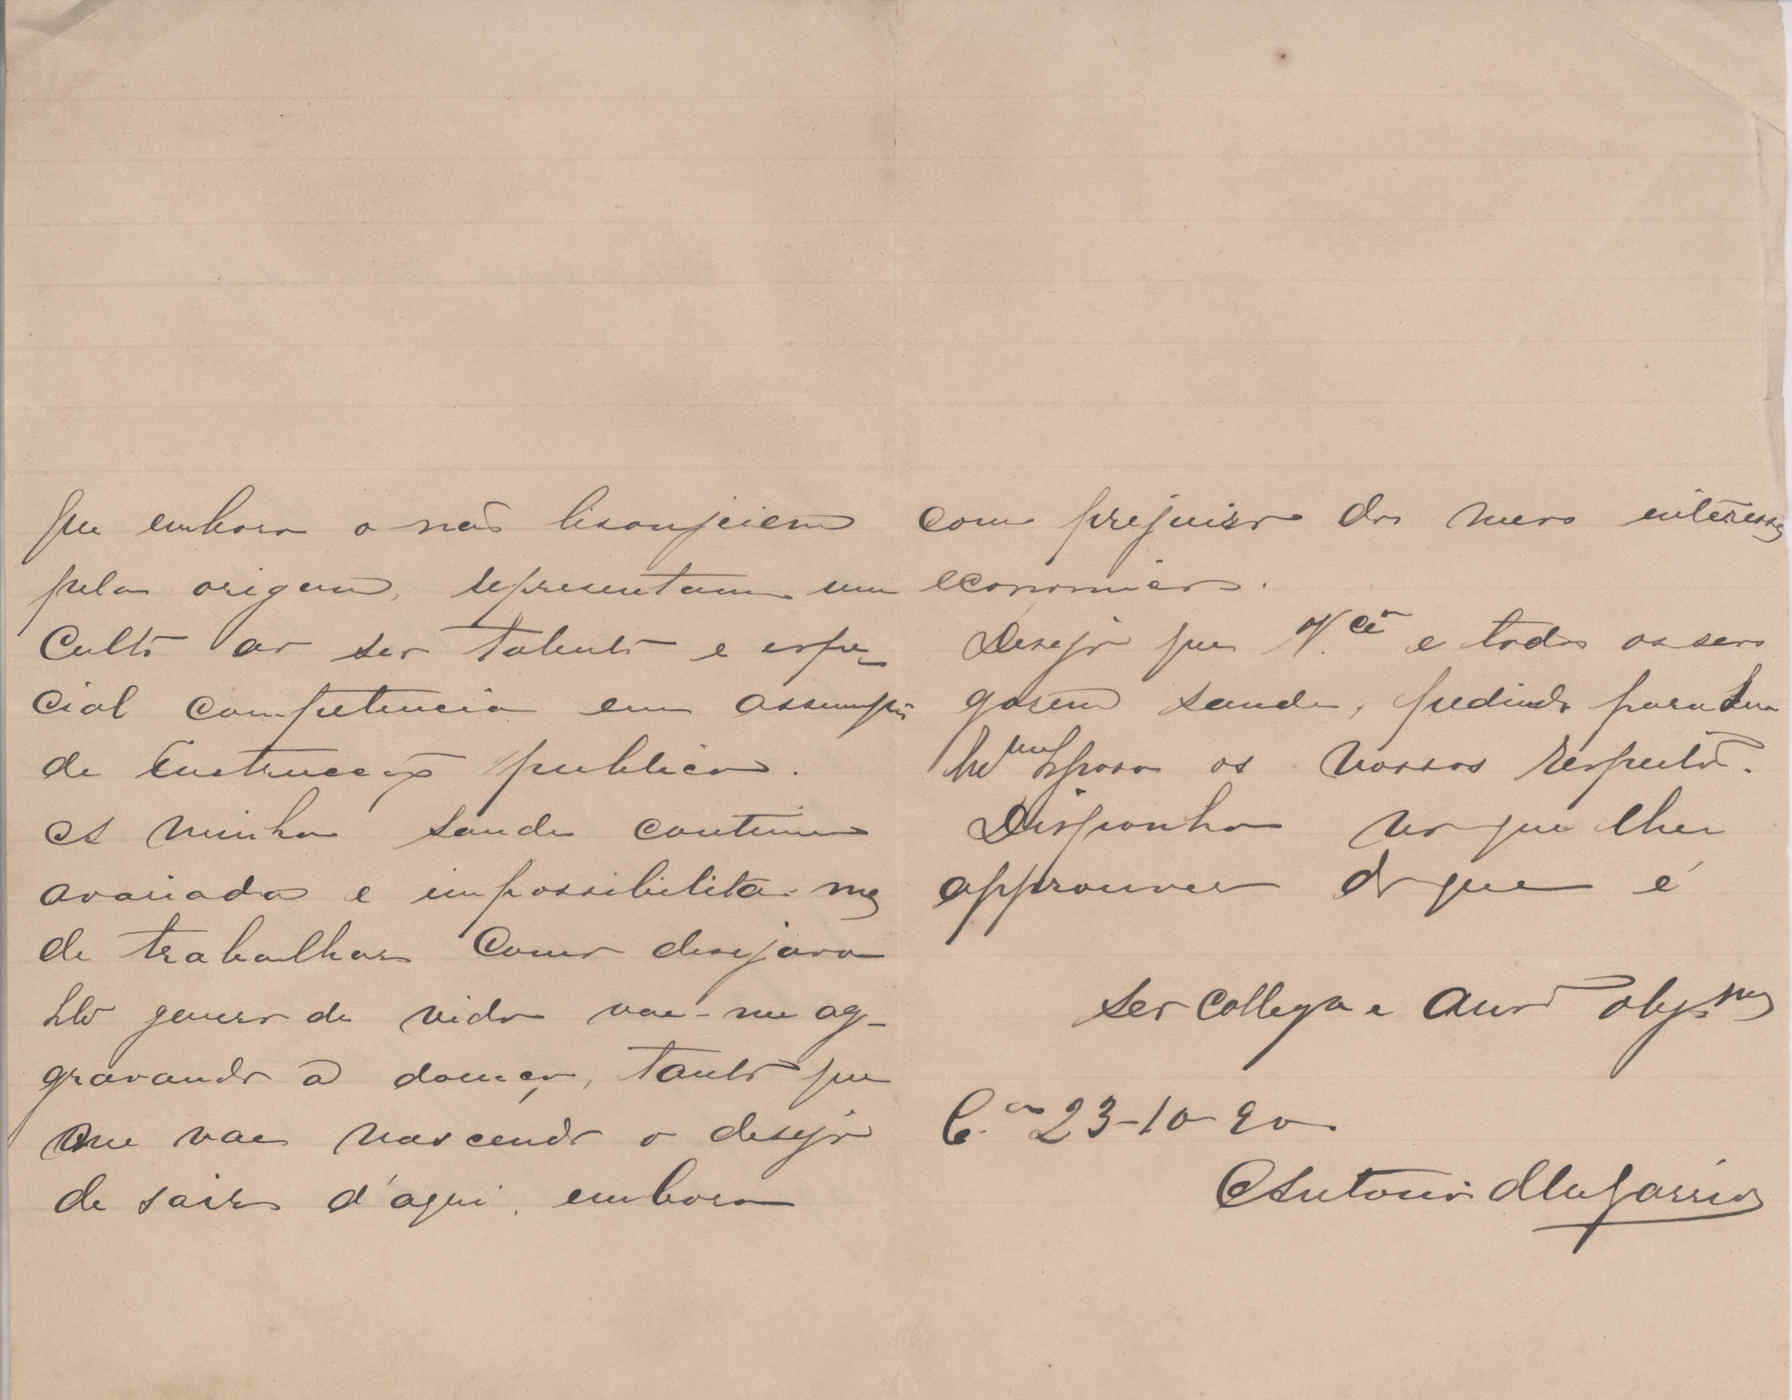 que embora o não lisonjeiem
pela origem, representam um
culto ao seu talento e espe-
cial competencia em assumptos
de Instrucção publica.
A minha saude continua
avariada e impossibilita-me
de trabalhar como desejava
Este genero de vida vae-me ag-
gravando a doença, tanto que
me vae nascendo o desejo
de sair d'aqui, embora
com prejuizo dos meus interesses
economicos.
Desejo que V.cê e todos os seus
gosem saude, pedindo para sua
Esposa os nossos respeitos.
Disponha no que lhe
approuver do que é
seu collega e amº obgmo
C.a 23-10-90
Antonio